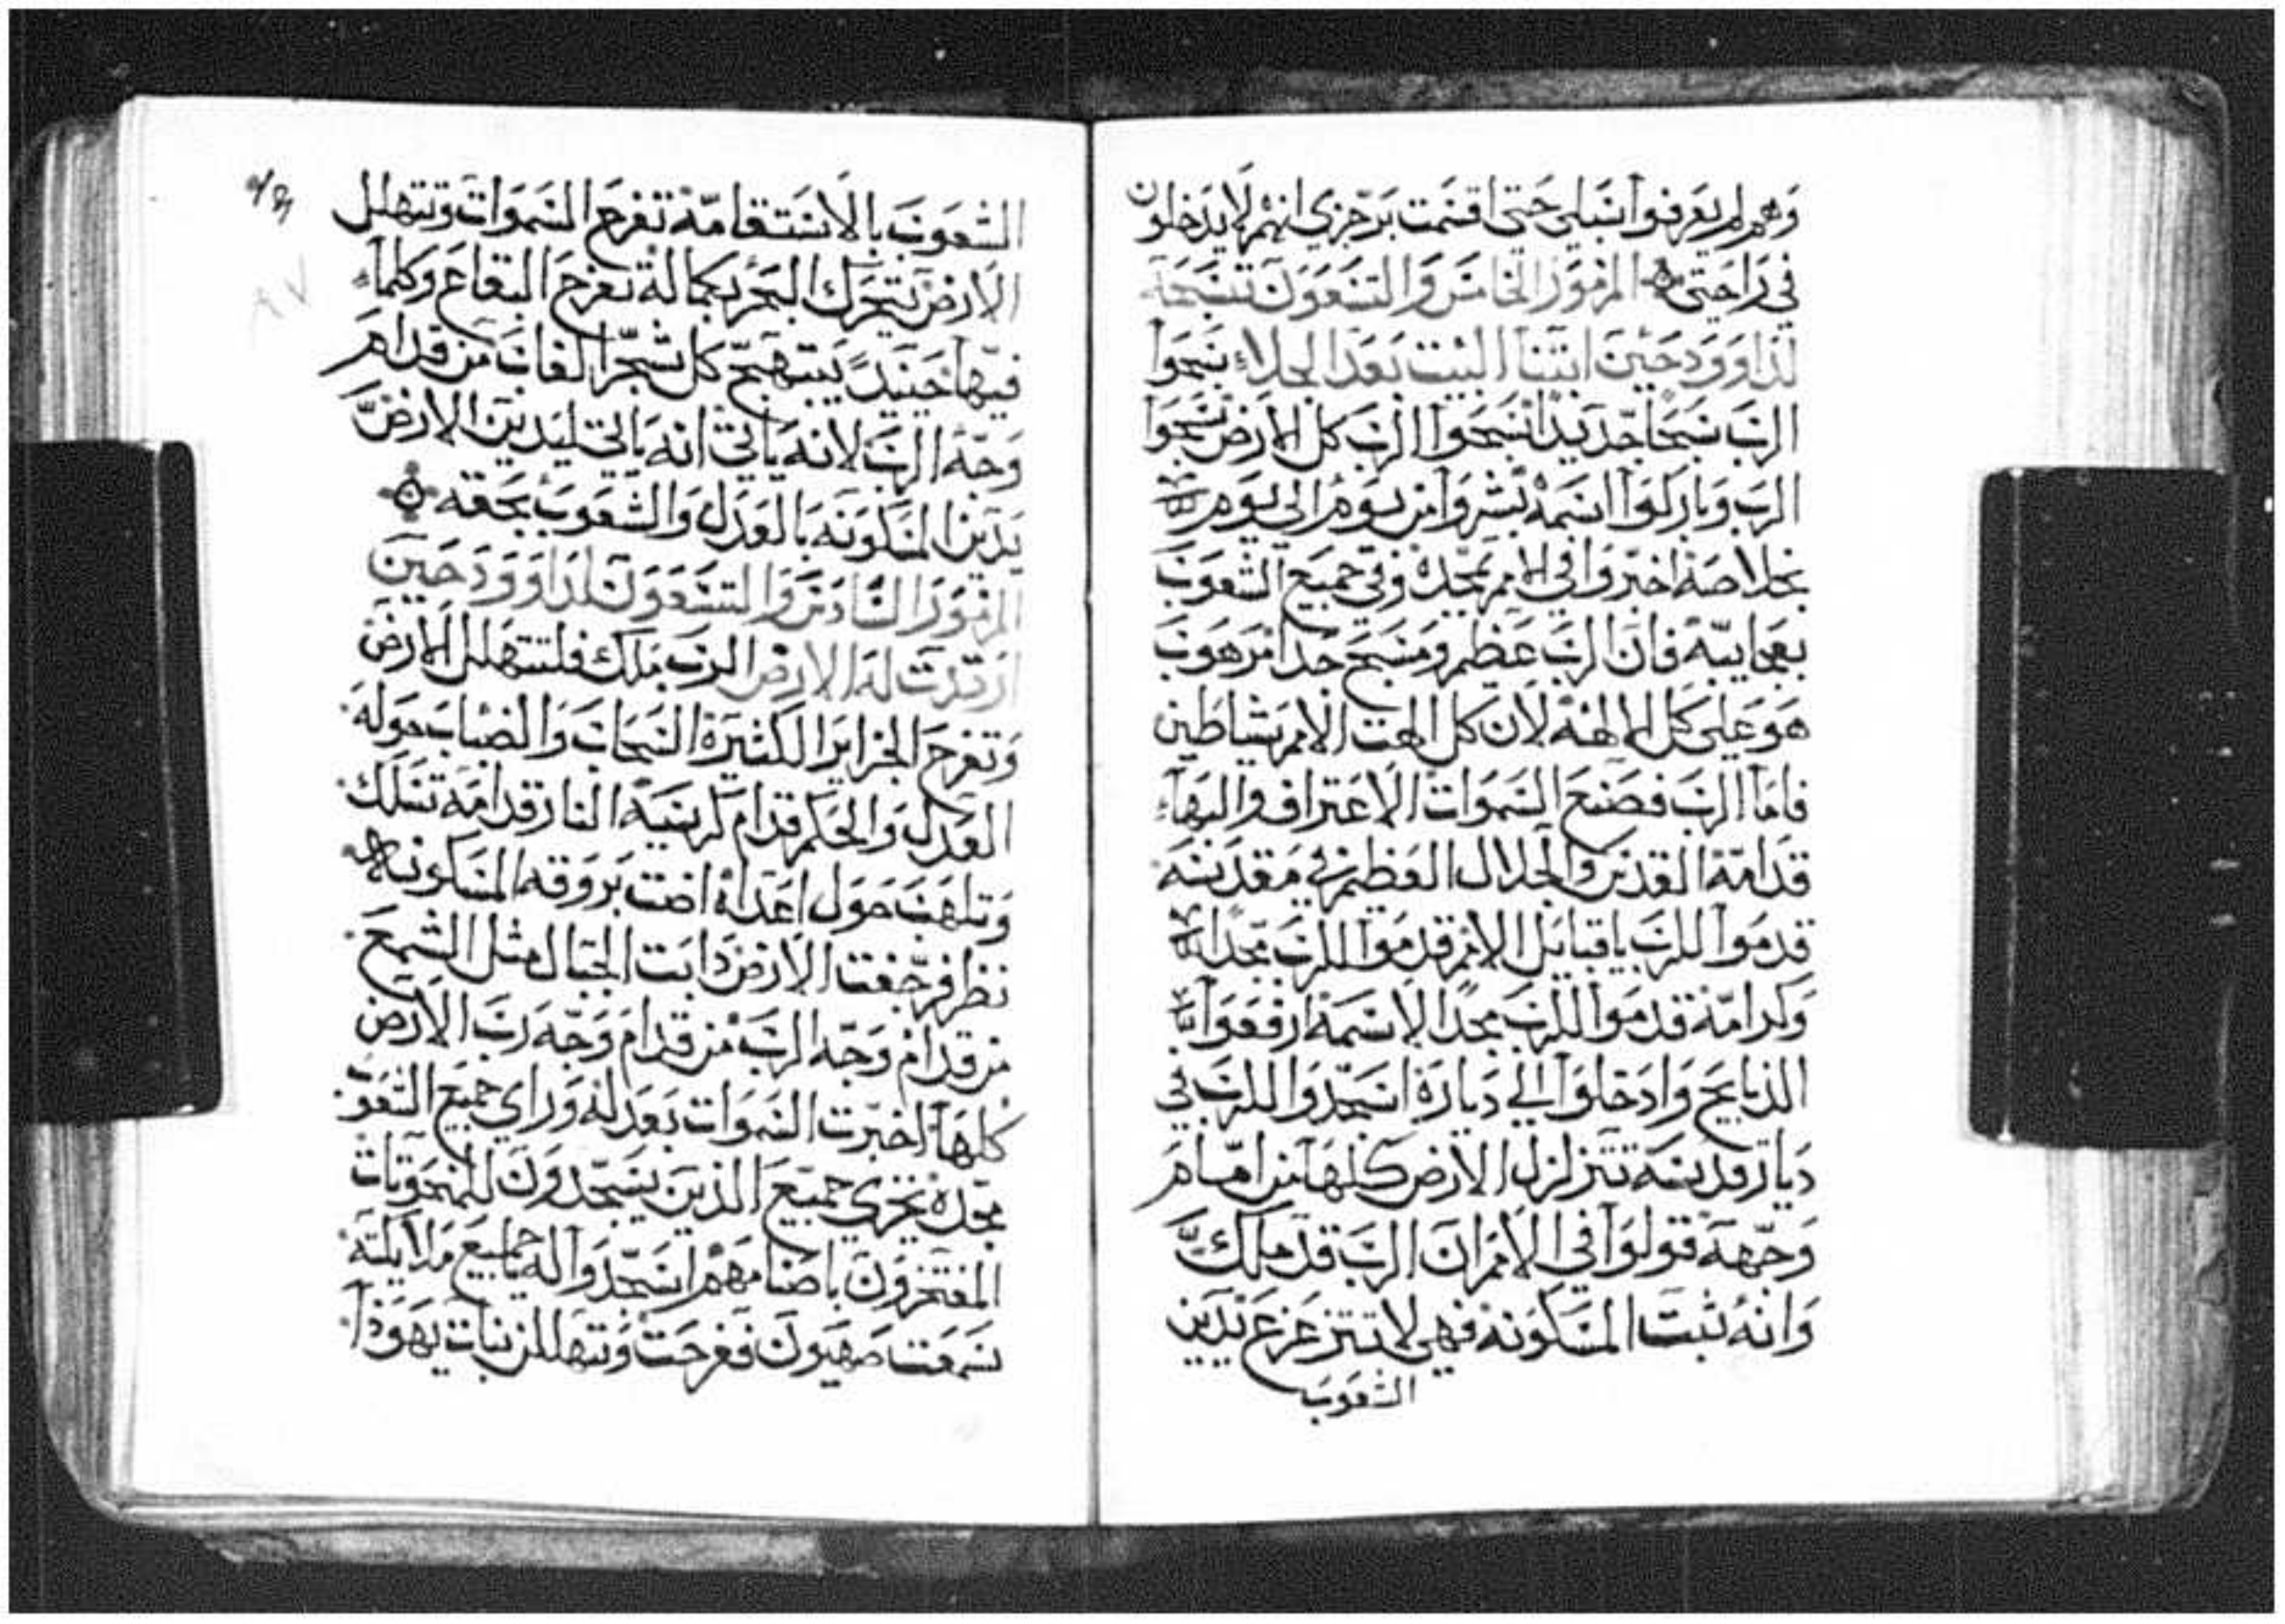 وهم لم يعرفوا سبلي حتى اقسمت برجزي انهم لا يدخلون
في راحتي المزمور الخامس والتسعون تسبحة
لداوود حين ابتنا البيت بعد الجلاء سبحوا
الرب سبحا جديدا سبحوا الرب كل الارض سبحوا
الرب وباركوا اسمه بشروا من يوم الى يوم
بخلاصه اخبروا في الامم بمجده وفي جميع الشعوب
بعجايبه فان الرب عظيم ومسبح جدا مرهوب
هو على كل الالهه لان كل الهت الامم شياطين
فاما الرب فصنع السموات الاعتراف والبهاء
قدامه القدس والجلال العظيم في مقدسه
قدموا للرب يا قبايل الامم قدموا للرب مجدا
وكرامه قدموا للرب مجدا لاسمه ارفعوا
الذبايح وادخلوا الي دياره اسجدوا للرب في
ديار قدسه تتزلزل الارض كلها من امام
وجهه قولوا في الامم ان الرب قد ملك
وانه ثبت المسكونه فهي لا تتزعزع يدين
الشعوب
الشعوب بالاستقامه تفرح السموات وتتهلل
الارض يتحرك البحر بكماله تفرح البقاع وكلما
فيها حينيد يبتهج كل شجر الغاب من قدام
وجه الرب لانه ياتي انه ياتي ليدين الارض
يدين المسكونه بالعدل والشعوب بحقه
المزمور السادس والتسعون لداوود حين
ارتدت له الارض الرب ملك فلتتهلل الارض
وتفرح الجزاير الكثيرة السحاب والضباب حوله
العدل والحكم قدام كرسيه النار قدامه تسلك
وتلهب حول اعداه اضت بروقه المسكونه
نظر فرجفت الارض دابت الجبال مثل الشمع
من قدام وجه الرب من قدام وجه رب الارض
كلها اخبرت السموات بعدله وراي جميع الشعوب
مجده يخزي جميع الذين يسجدون للمنحوتات
المفتخرون باصنامهم اسجدوا له يا جميع ملايكته
سمعت صهيون ففرحت وتهللن بنات يهوذا